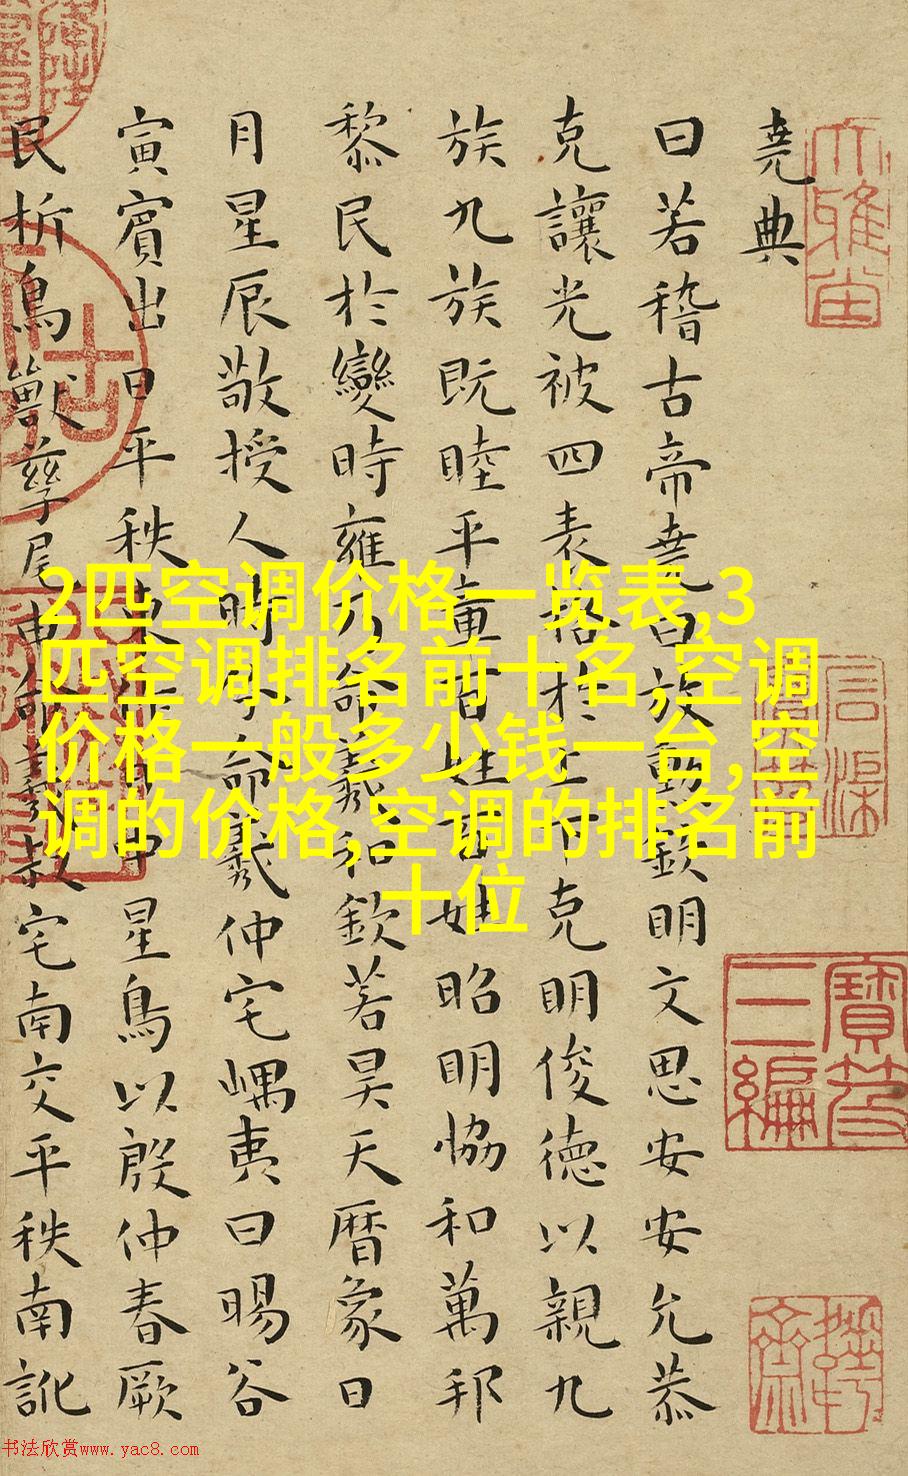 堯典
曰若稽古帝堯曰放勳欽明文思安安允恭
克讓光被四表格於上下克明俊德以親九
族九族既睦平章百姓百姓昭明恊和萬邦
黎民於變時雍乃命羲和欽若昊天暦象日
月星辰敬授人時分命羲仲宅嵎夷曰暘谷
寅賓出日平秩東作日中星鳥以殷仲春厥
民析鳥獸孳尾申命羲叔宅南交平秩南訛
寶笈
三編
2匹空调价格一览表,3
匹空调排名前十名,空调
价格一般多少钱一台,空
调的价格,空调的排名前
十位
书法欣赏www.yac8.com